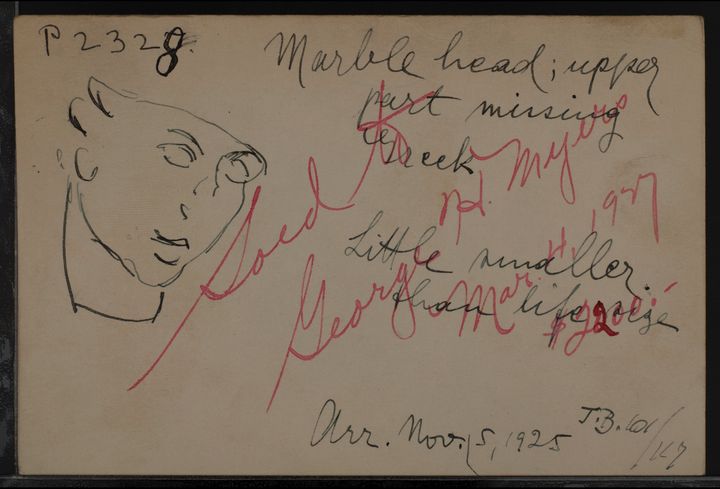 P 2328.
Marble head; upper
part missing
Greek
Little smaller
than life size
Sold to
George H. Myers
Mar. 4, 1927
Arr. Nov. 5, 1925
J.B.